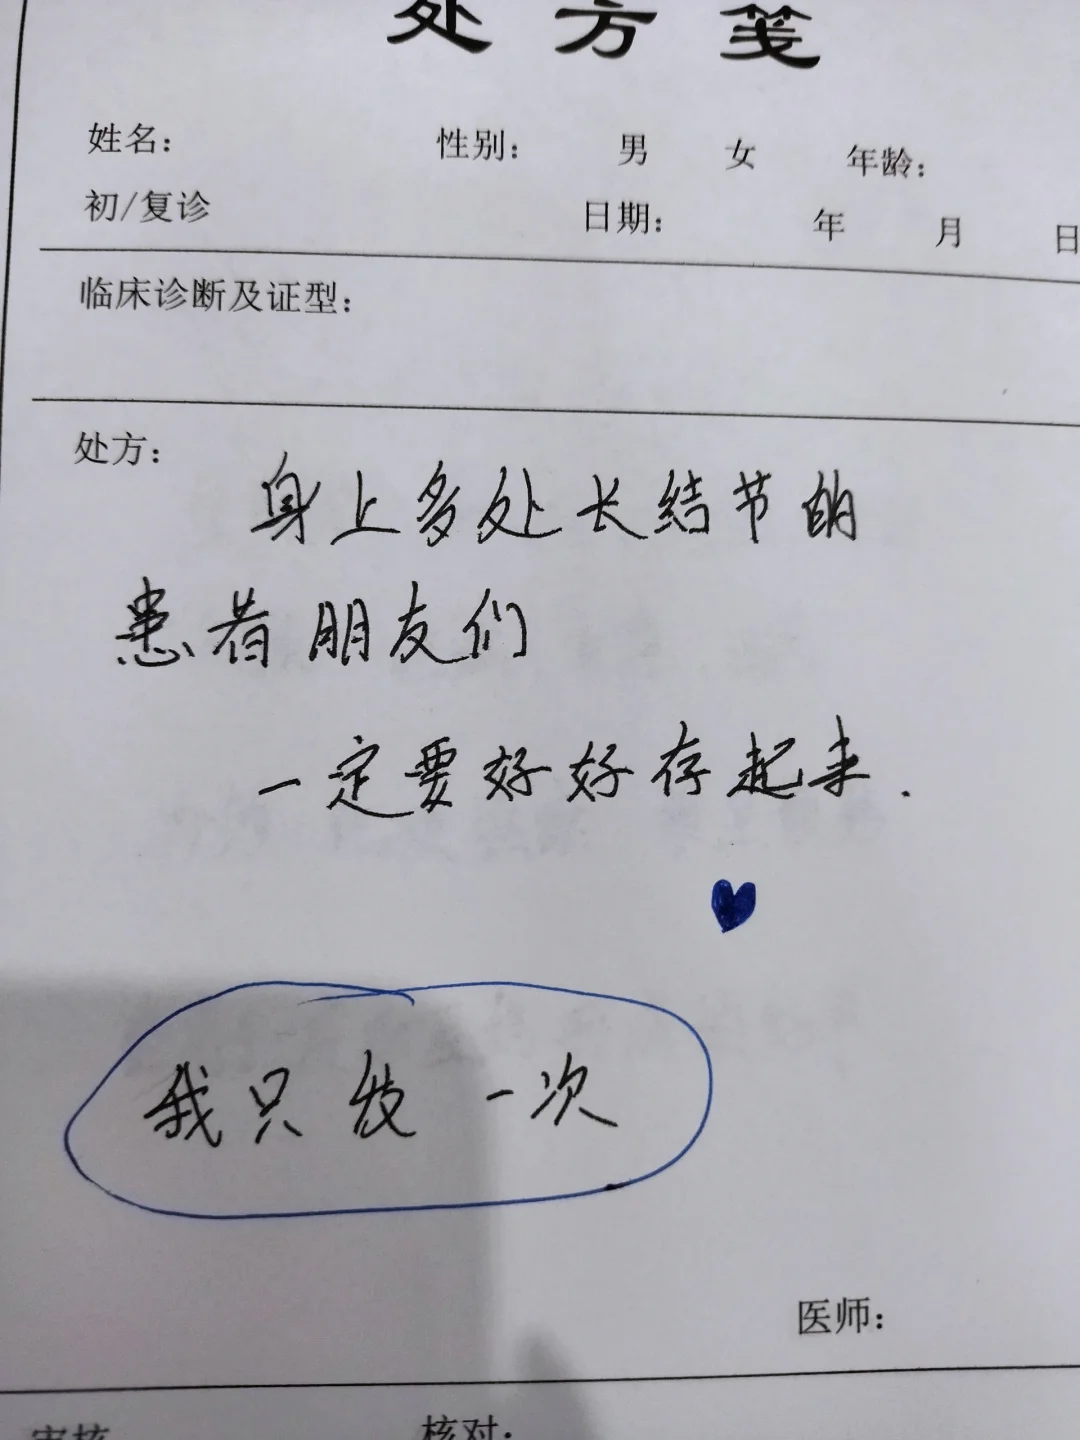 处方笺
姓名： 性别： 男 女 年龄：
初/复诊 日期： 年 月 日
临床诊断及证型：
处方：
身上多处长结节的
患者朋友们
一定要好好存起来.
我只发一次
医师：
审核 核对：